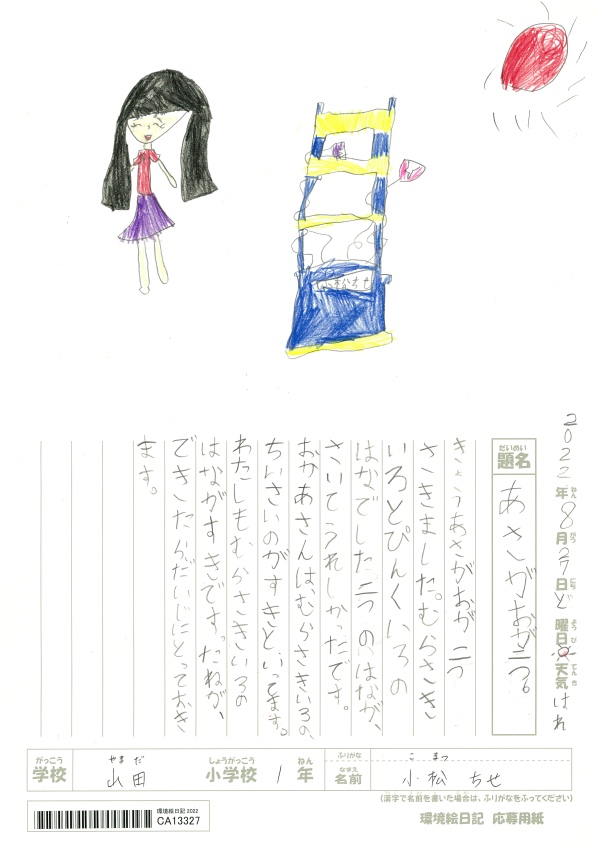 小松ちせ
2022年ねん8月がつ27日にちど曜日ようび天気てんきはれ
だいめい
題名
あさがおが二つ。
きょうあさがおが二つ
さきました。むらさき
いろとぴんくいろの
はなでした二つのはなが、
さいてうれしかったです。
おかあさんは、むらさきいろの、
ちいさいのがすきといってます。
わたしもむらさきいろの
はながすきです。たねが、
できたらだいじにとっておき
ます。
がっこう
学校
やまだ
山田
しょうがっこう
小学校
1
ねん
年
ふりがな
こまつ
なまえ
名前
小松 ちせ
(漢字で名前を書いた場合は、ふりがなをふってください)
環境絵日記 応募用紙
環境絵日記 2022
CA13327